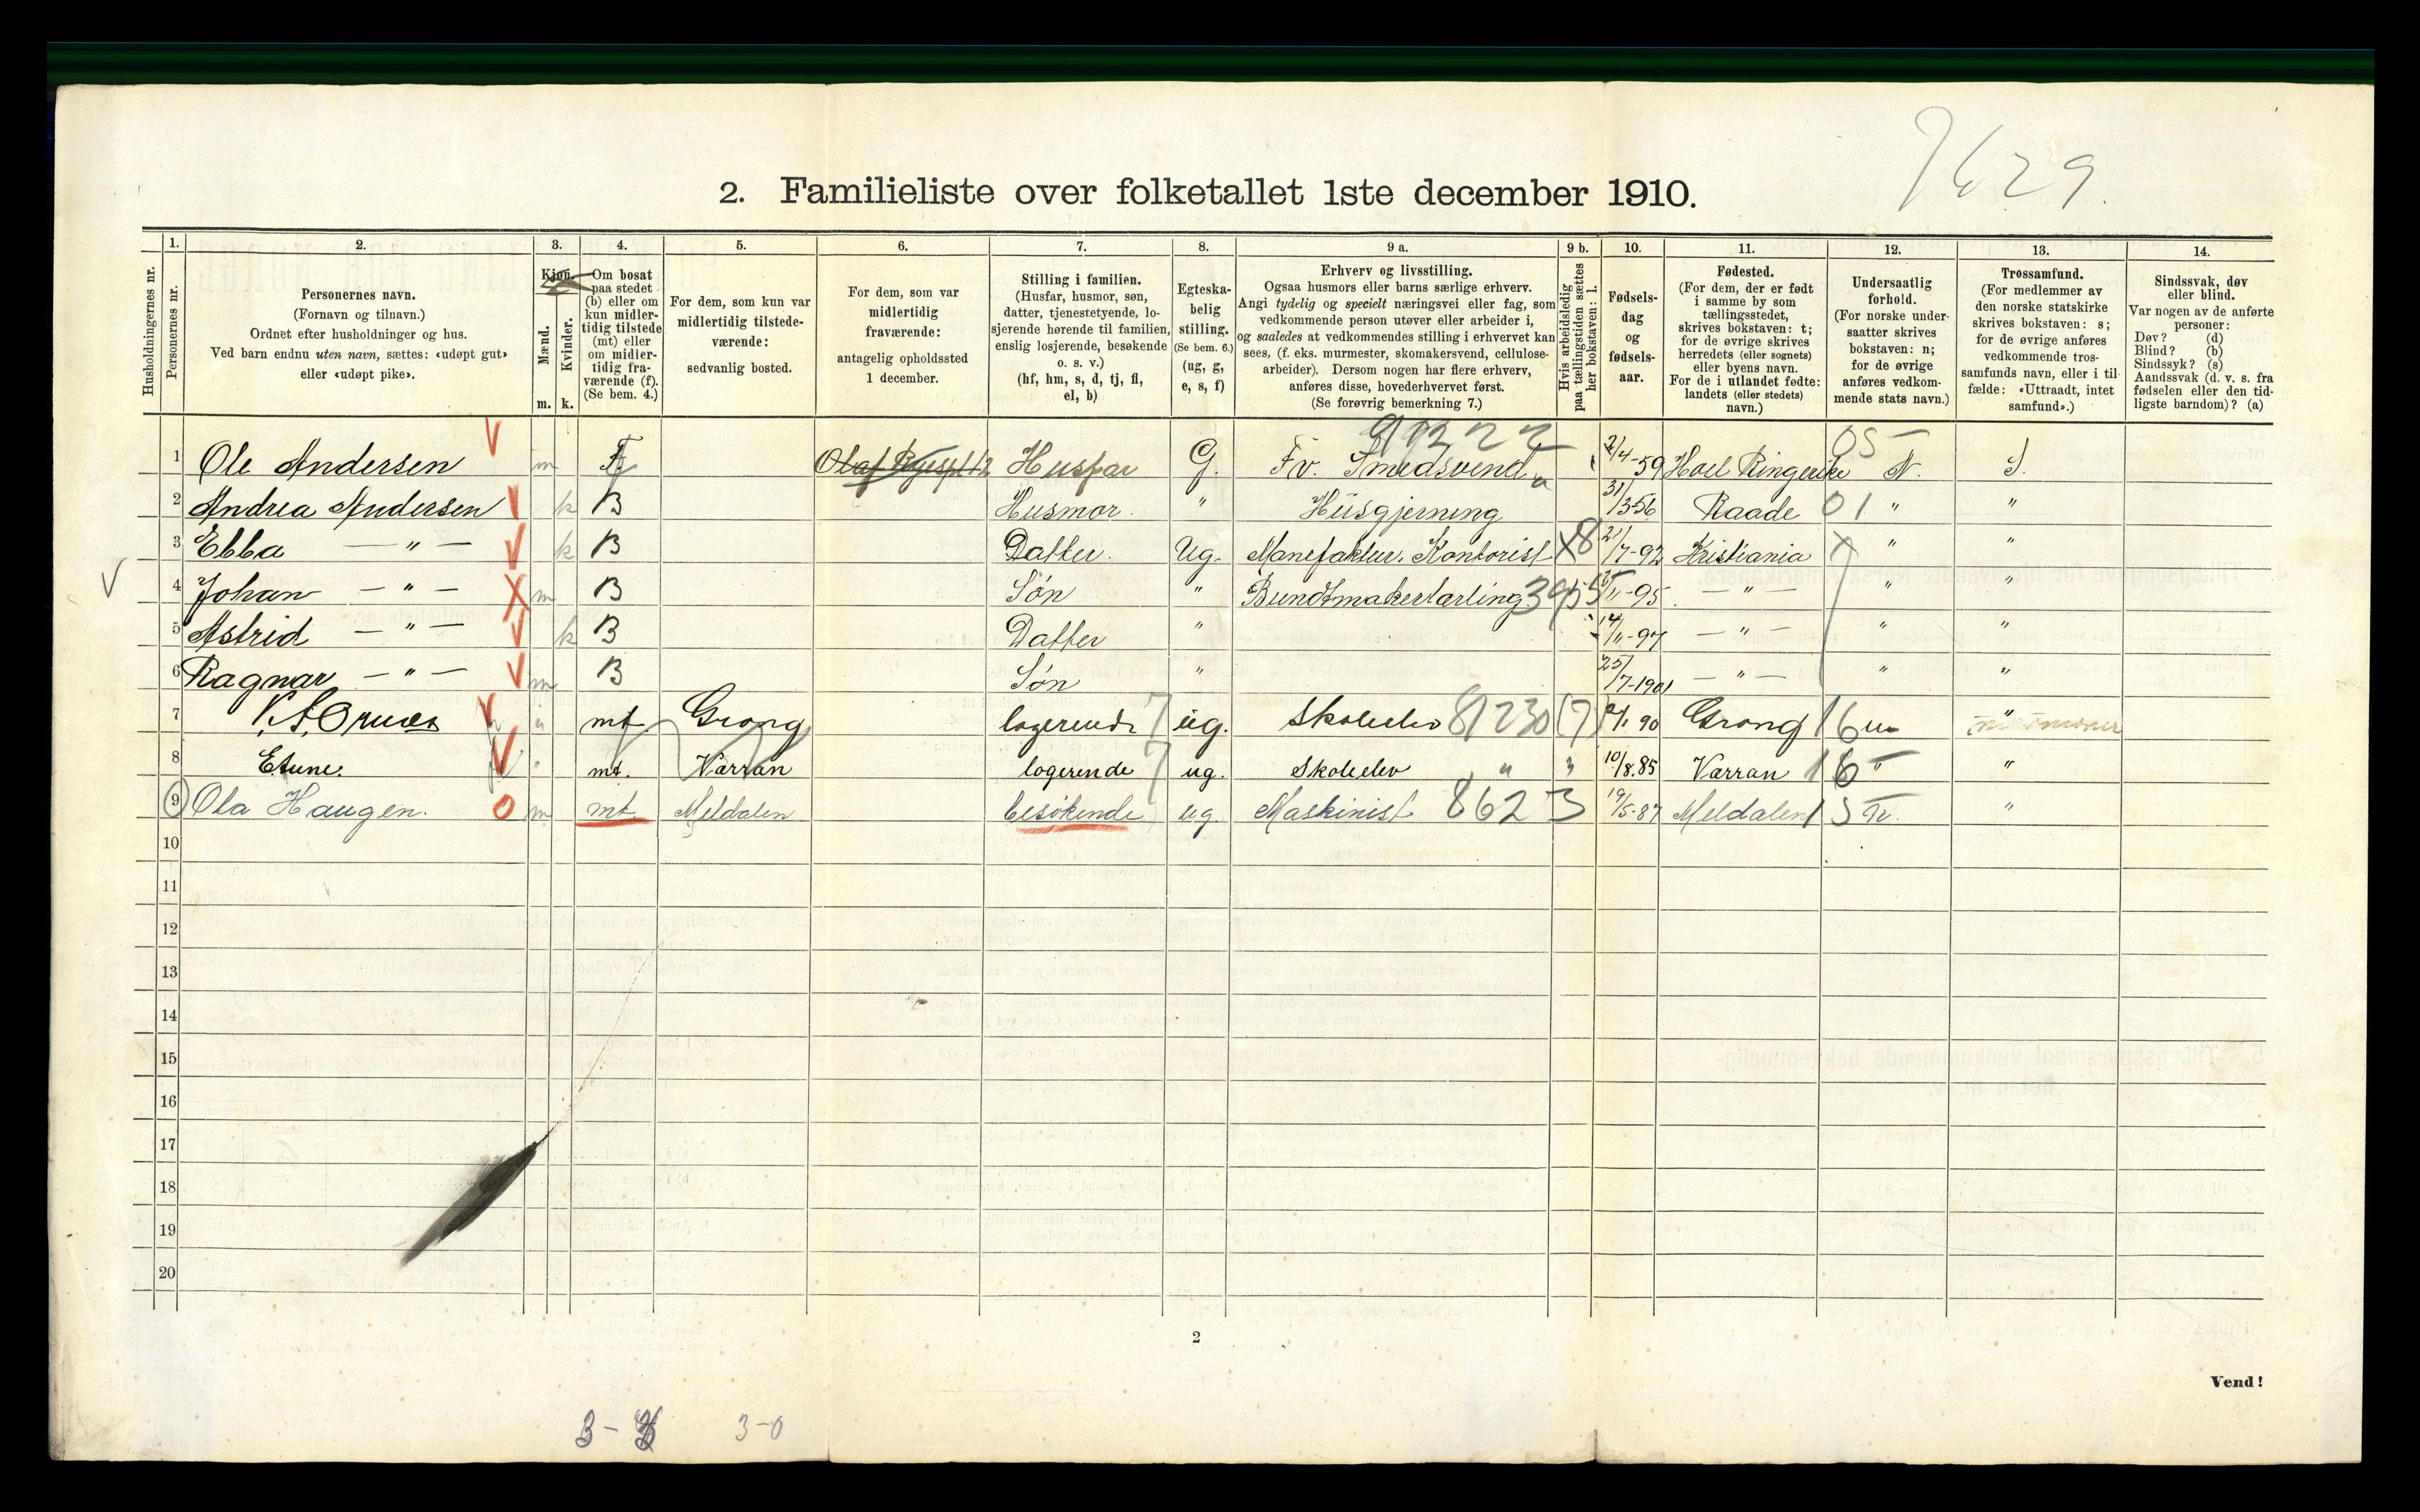 7629
2. Familieliste over folketallet 1ste december 1910.
Husholdningernes nr.
1. Personernes nr.
2. Personernes navn. (Fornavn og tilnavn.) Ordnet efter husholdninger og hus. Ved barn endnu uten navn, sættes: «udøpt gut» eller «udøpt pike».
3. Kjøn. Mænd. m. Kvinder. k.
4. Om bosat paa stedet (b) eller om kun midlertidig tilstede (mt) eller om midlertidig fraværende (f). (Se bem. 4.)
5. For dem, som kun var midlertidig tilstedeværende: sedvanlig bosted.
6. For dem, som var midlertidig fraværende: antagelig opholdssted 1 december.
7. Stilling i familien. (Husfar, husmor, søn, datter, tjenestetyende, losjerende hørende til familien, enslig losjerende, besøkende o. s. v.) (hf, hm, s, d, tj, fl, el, b)
8. Egteskabelig stilling. (Se bem. 6.) (ug, g, e, s, f)
9 a. Erhverv og livsstilling. Ogsaa husmors eller barns særlige erhverv. Angi tydelig og specielt næringsvei eller fag, som vedkommende person utøver eller arbeider i, og saaledes at vedkommendes stilling i erhvervet kan sees, (f. eks. murmester, skomakersvend, cellulosearbeider). Dersom nogen har flere erhverv, anføres disse, hovederhvervet først. (Se forøvrig bemerkning 7.)
9 b. Hvis arbeidsledig paa tællingstiden sættes her bokstaven: l.
10. Fødselsdag og fødselsaar.
11. Fødested. (For dem, der er født i samme by som tællingsstedet, skrives bokstaven: t; for de øvrige skrives herredets (eller sognets) eller byens navn. For de i utlandet fødte: landets (eller stedets) navn.)
12. Undersaatlig forhold. (For norske undersaatter skrives bokstaven: n; for de øvrige anføres vedkommende stats navn.)
13. Trossamfund. (For medlemmer av den norske statskirke skrives bokstaven: s; for de øvrige anføres vedkommende trossamfunds navn, eller i tilfælde: «Uttraadt, intet samfund».)
14. Sindssvak, døv eller blind. Var nogen av de anførte personer: Døv? (d) Blind? (b) Sindssyk? (s) Aandssvak (d. v. s. fra fødselen eller den tidligste barndom)? (a)
1 Ole Andersen m F. Husfar G. Fv. Smedsvend 2/4-59 Hoel Ringerike 05 N. S.
2 Andrea Andersen k B Husmor. " Husgjerning 31/3 56 Raade 01 " "
3 Ebba — " — k B Datter. Ug. Manefaktur. Kontorist 21/7-92 Kristiania " "
4 Johan — " — m B Søn " Bundtmakerlærling 3955 /11-95 — " — " "
5 Astrid — " — k B Datter " 14/11-97 — " — " "
6 Ragnar — " — m B Søn " 25/7-1901 — " — " "
7 mt Grong logerende ug. Skoleelev 81230 (7) 90 Grong 16 "
8 Etune. mt. Værran logerende ug. Skoleelev " " 10/8.85 Værran 16 " "
9 Ola Haugen. m mt. Meldalen besøkende ug. Maskinist 8623 19/5-87 Meldalen 15 n. "
10
11
12
13
14
15
16
17
18
19
20
2
Vend!
3-0